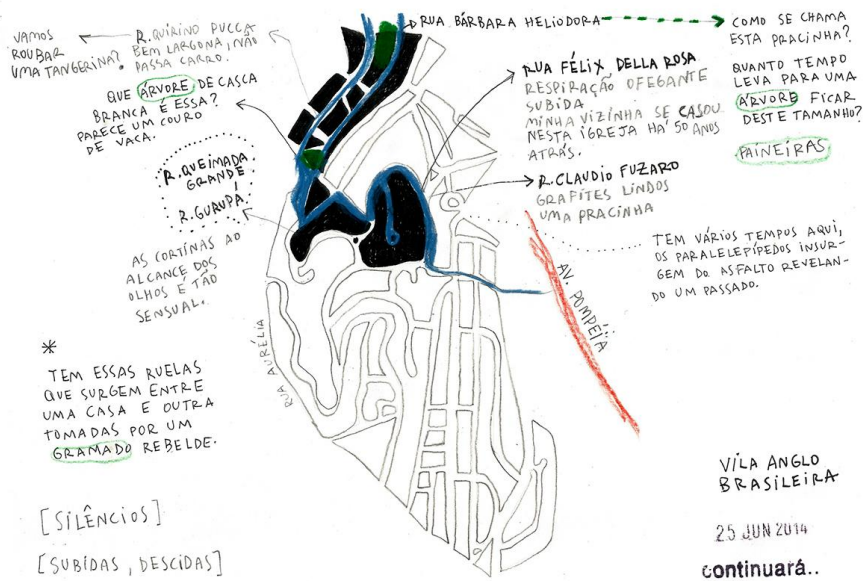 VAMOS
ROUBAR
UMA TANGERINA?
R. QUIRINO PUCCA
BEM LARGONA, NÃO
PASSA CARRO.
QUE ÁRVORE DE CASCA
BRANCA É ESSA?
PARECE UM COURO
DE VACA.
R. QUEIMADA
GRANDE
R. GURUPÁ
AS CORTINAS AO
ALCANCE DOS
OLHOS É TÃO
SENSUAL.
*
TEM ESSAS RUELAS
QUE SURGEM ENTRE
UMA CASA E OUTRA
TOMADAS POR UM
GRAMADO REBELDE.
[SILÊNCIOS]
[SUBIDAS, DESCIDAS]
RUA AURÉLIA
RUA BÁRBARA HELIODORA
RUA FÉLIX DELLA ROSA
RESPIRAÇÃO OFEGANTE
SUBIDA
MINHA VIZINHA SE CASOU
NESTA IGREJA HÁ 50 ANOS
ATRÁS.
R. CLAUDIO FUZARO
GRAFITES LINDOS
UMA PRACINHA
COMO SE CHAMA
ESTA PRACINHA?
QUANTO TEMPO
LEVA PARA UMA
ÁRVORE FICAR
DESTE TAMANHO?
PAINEIRAS
TEM VÁRIOS TEMPOS AQUI,
OS PARALELEPÍPEDOS INSUR-
GEM DO ASFALTO REVELAN-
DO UM PASSADO.
AV. POMPÉIA
VILA ANGLO
BRASILEIRA
25 JUN 2014
continuará..